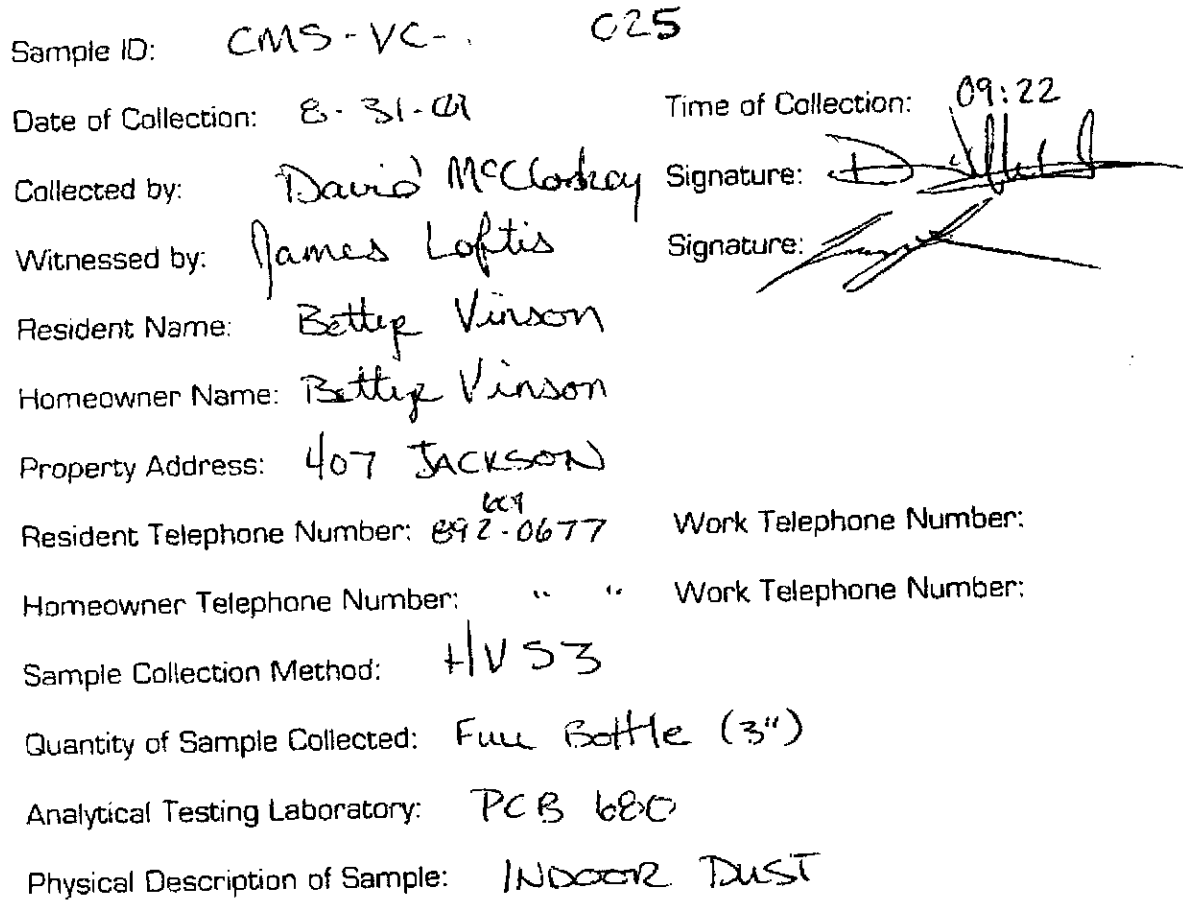 Sample ID: CMS-VC-. 025
Date of Collection: 8-31-01 Time of Collection: 09:22
Collected by: David McCloskey Signature:
Witnessed by: James Loftis Signature:
Resident Name: Bettye Vinson
Homeowner Name: Bettye Vinson
Property Address: 407 JACKSON
Resident Telephone Number: 892-0677 Work Telephone Number:
Homeowner Telephone Number: " " Work Telephone Number:
Sample Collection Method: HVS3
Quantity of Sample Collected: Full Bottle (3")
Analytical Testing Laboratory: PCB 680
Physical Description of Sample: INDOOR DUST